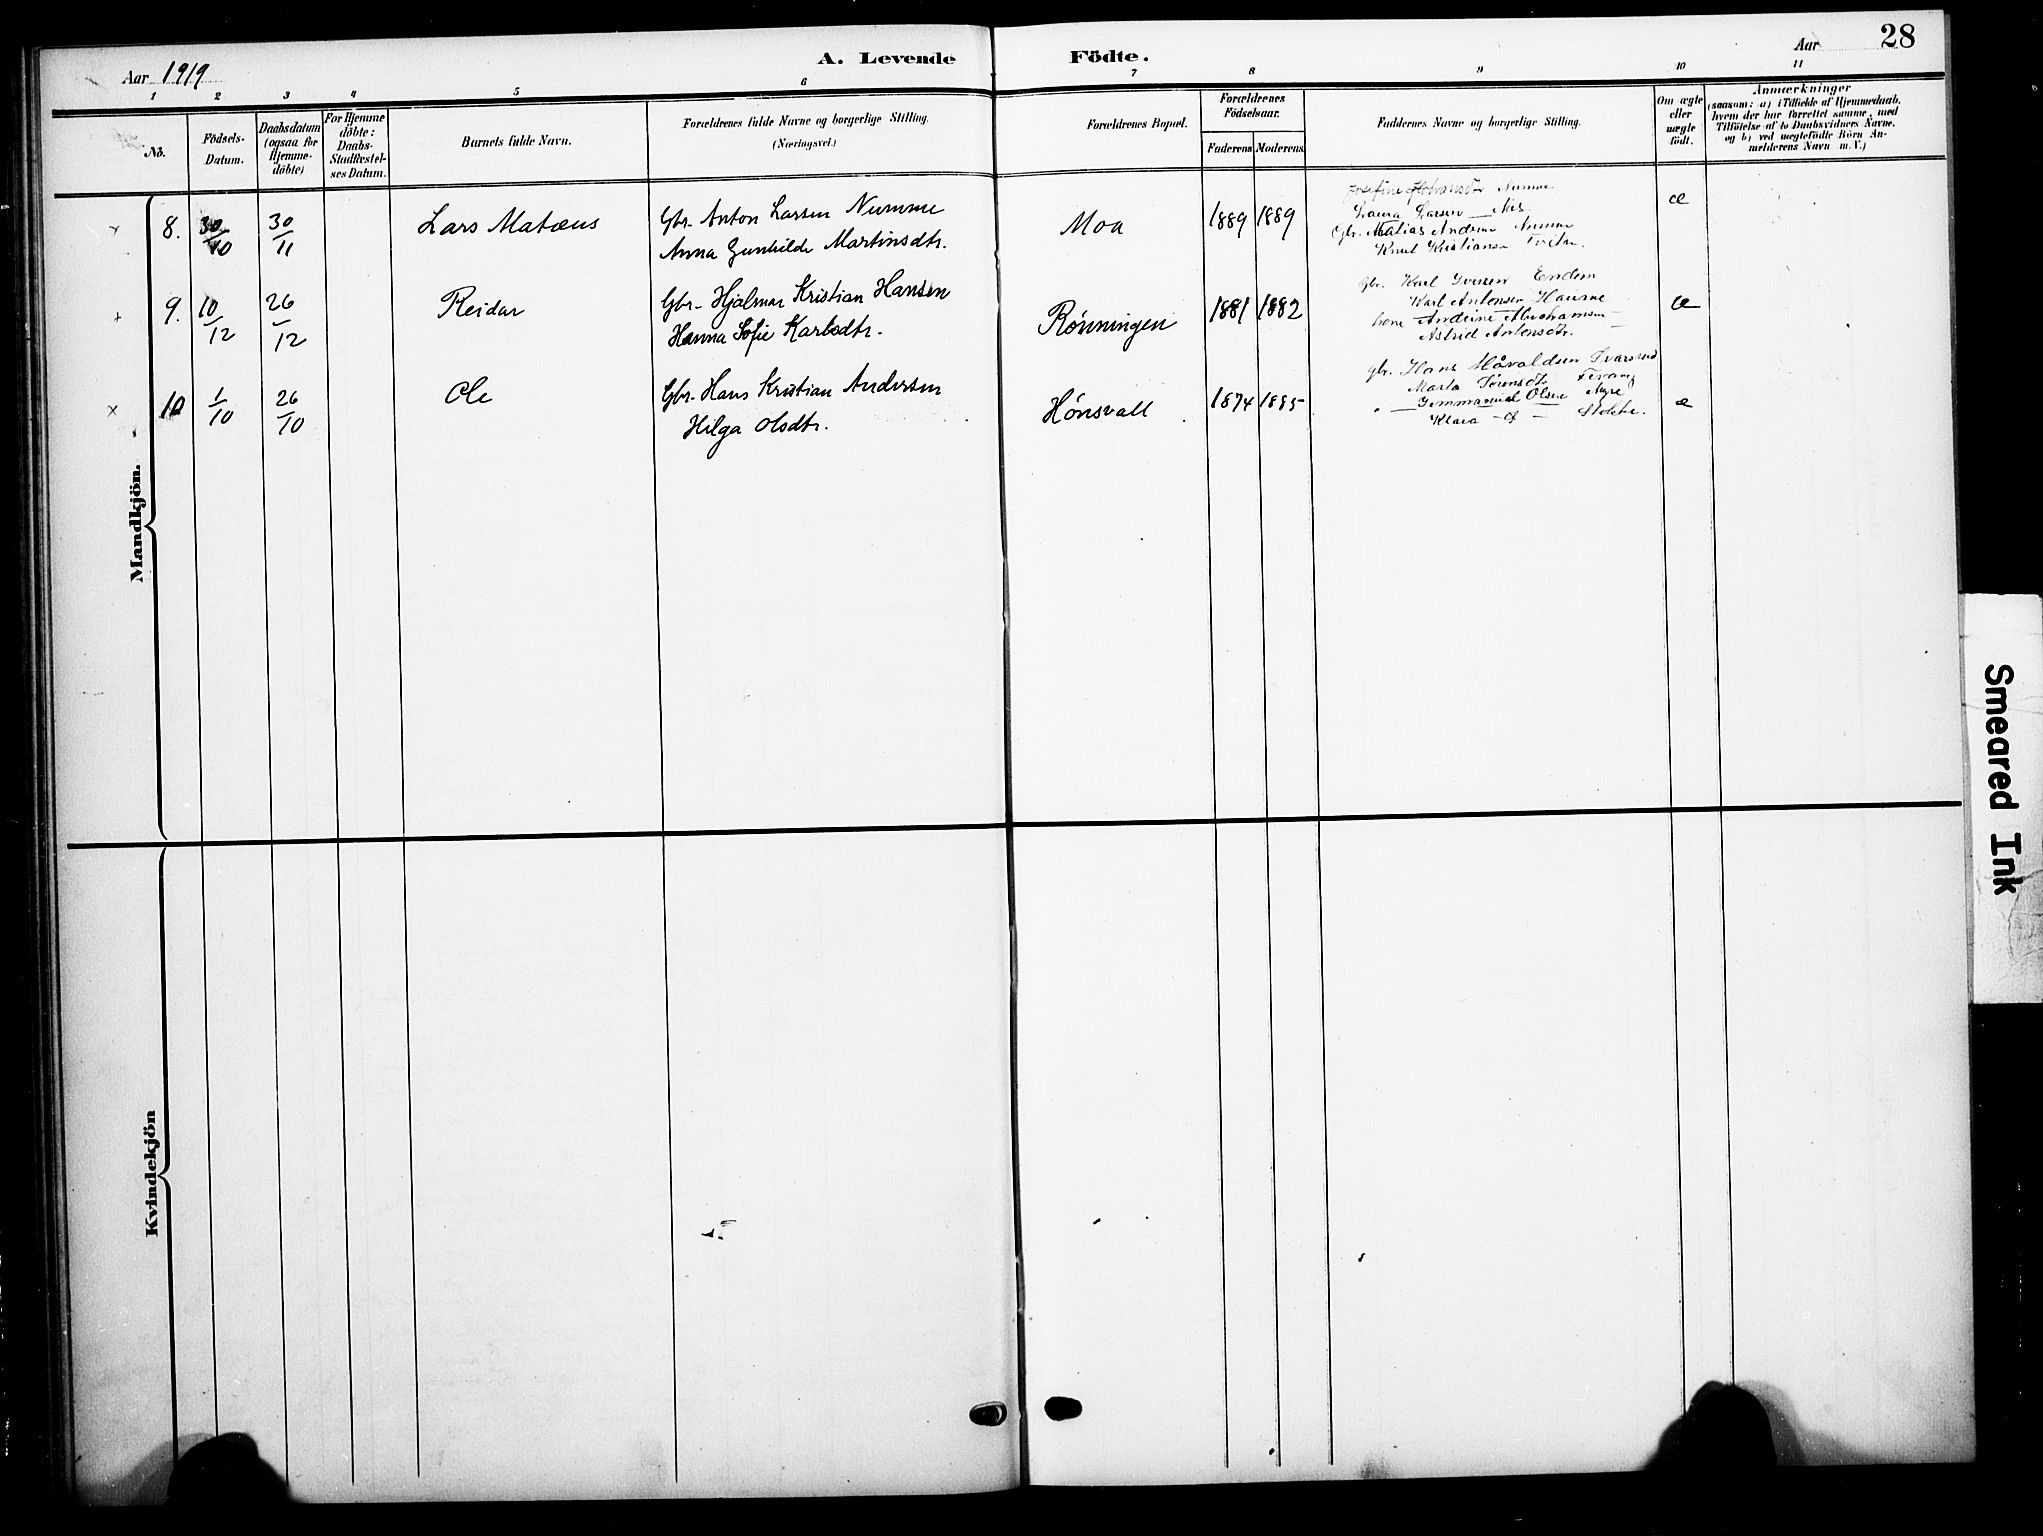 Aar 1919
A. Levende Födte.
Aar 28
1 2 3 4 5 6 7 8 9 10 11
No.
Födsels-Datum.
Daabsdatum (ogsaa for Hjemme-döbte)
For Hjemme döbte: Daabs-Stadfæstel-ses Datum.
Barnets fulde Navn.
Forældrenes fulde Navne og borgerlige Stilling. (Næringsvei.)
Forældrenes Bopæl.
Forældrenes Födselsaar.
Faderens Moderens
Faddernes Navne og borgerlige Stilling.
Om ægte eller uægte födt.
Anmærkninger
(saasom: a) i Tilfælde af Hjemmedaab,
hvem der har forrettet samme, med
Tilföielse af to Daabsvidners Navne.
og b) ved uægtefödte Börn An-
melderens Navn m. V.)
Mandkjön.
8. 30/10 30/11 Lars Matæus
Gbr. Anton Larsen Numme
Anna Gunhilde Martinsdtr.
Moa 1889 1889
Josefine Numme
Laura Larsen
Gbr. Matias Andr
Knut Kristiansen
æ
9. 10/12 26/12 Reidar
Gbr. Hjalmar Kristian Hansen
Hanna Sofie Karlsdtr.
Rønningen 1881 1882
Gbr. Karl Iversen Endem
Karl Antonsen
kone Andrine Abrahamsen
Astrid Antonsdtr.
æ
10 1/10 26/10 Ole
Gbr. Hans Kristian Andersen
Helga Olsdtr.
Hönsvall 1874 1885
gbr. Hans Håvaldsen
Marta Sørensdtr Fevang
Gemmanuel Olsen
Klara Stokke.
æ
Kvindekjön
Smeared Ink